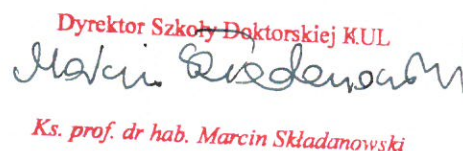 Dyrektor Szkoły Doktorskiej KUL
Marcin Składanowski
Ks. prof. dr hab. Marcin Składanowski